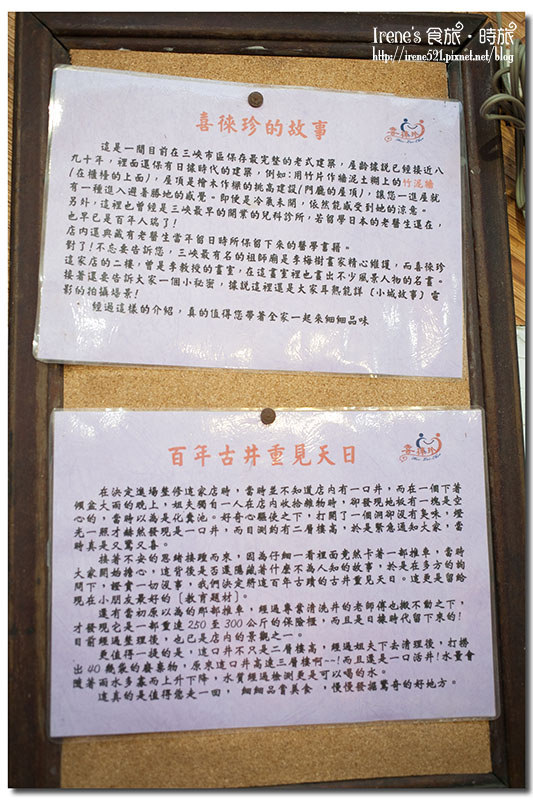 Irene's 食旅·時旅
http://irene521.pixnet.net/blog
喜徠珍的故事
喜徠珍
這是一間目前在三峽市區保存最完整的老式建築，屋齡據說已經接近八
九十年，裡面還保有日據時代的建築，例如：用竹片作牆泥土糊上的竹泥牆
(在櫃檯的上面)，屋頂是檜木作樑的挑高建設(門廳的屋頂)，讓您一進屋就
有一種進入避暑勝地的感覺。即使是冷氣未開，依然能感受到她的涼意。
另外，這裡也曾經是三峽最早的開業的兒科診所，若留學日本的老醫生還在，
也早已是百年人瑞了!
店內還典藏有老醫生當年留日時所保留下來的醫學書籍。
對了!不忘要告訴您，三峽最有名的祖師廟是李梅樹畫家精心維護，而喜徠珍
這家店的二樓，曾是李教授的畫室，在這畫室裡也畫出不少風景人物的名畫。
接著還要告訴大家一個小秘密，據說這裡還是大家耳熟能詳〔小城故事〕電
影的拍攝場景!
經過這樣的介紹，真的值得您帶著全家一起來細細品味
百年古井重見天日
喜徠珍
在決定進場整修這家店時，當時並不知道店內有一口井，而在一個下著
傾盆大雨的晚上，姐夫獨自一人在店內收拾雜物時，卻發現地板有一塊是空
心的，當時以為是化糞池。好奇心驅使之下，打開了一個洞卻沒有臭味，燈
光一照才赫然發現是一口井，而目測約有二層樓高，於是緊急通知大家，當
時真是又驚又喜。
接著不安的思緒接踵而來，因為仔細一看裡面竟然卡著一部推車，當時
大家開始擔心，這背後是否還隱藏著什麼不為人知的故事，於是在多方的詢
問下，證實一切沒事，我們決定將這百年古蹟的古井重見天日。這更是留給
現在小朋友最好的〔教育題材〕。
還有當初原以為的那部推車，經過專業清洗井的老師傅也搬不動之下，
才發現它是一部重達250至300公斤的保險櫃，而且是日據時代留下來的!
目前經過整理後，也已是店內的景觀之一。
更值得一提的是，這口井不只是二層樓高，經過姐夫下去清理後，打撈
出40幾袋的廢棄物，原來這口井高達三層樓啊~~!而且還是一口活井!水量會
隨著雨水多寡而上升下降，水質經過檢測更是可以喝的水。
這真的是值得您走一回，細細品嘗美食，慢慢發掘驚奇的好地方。